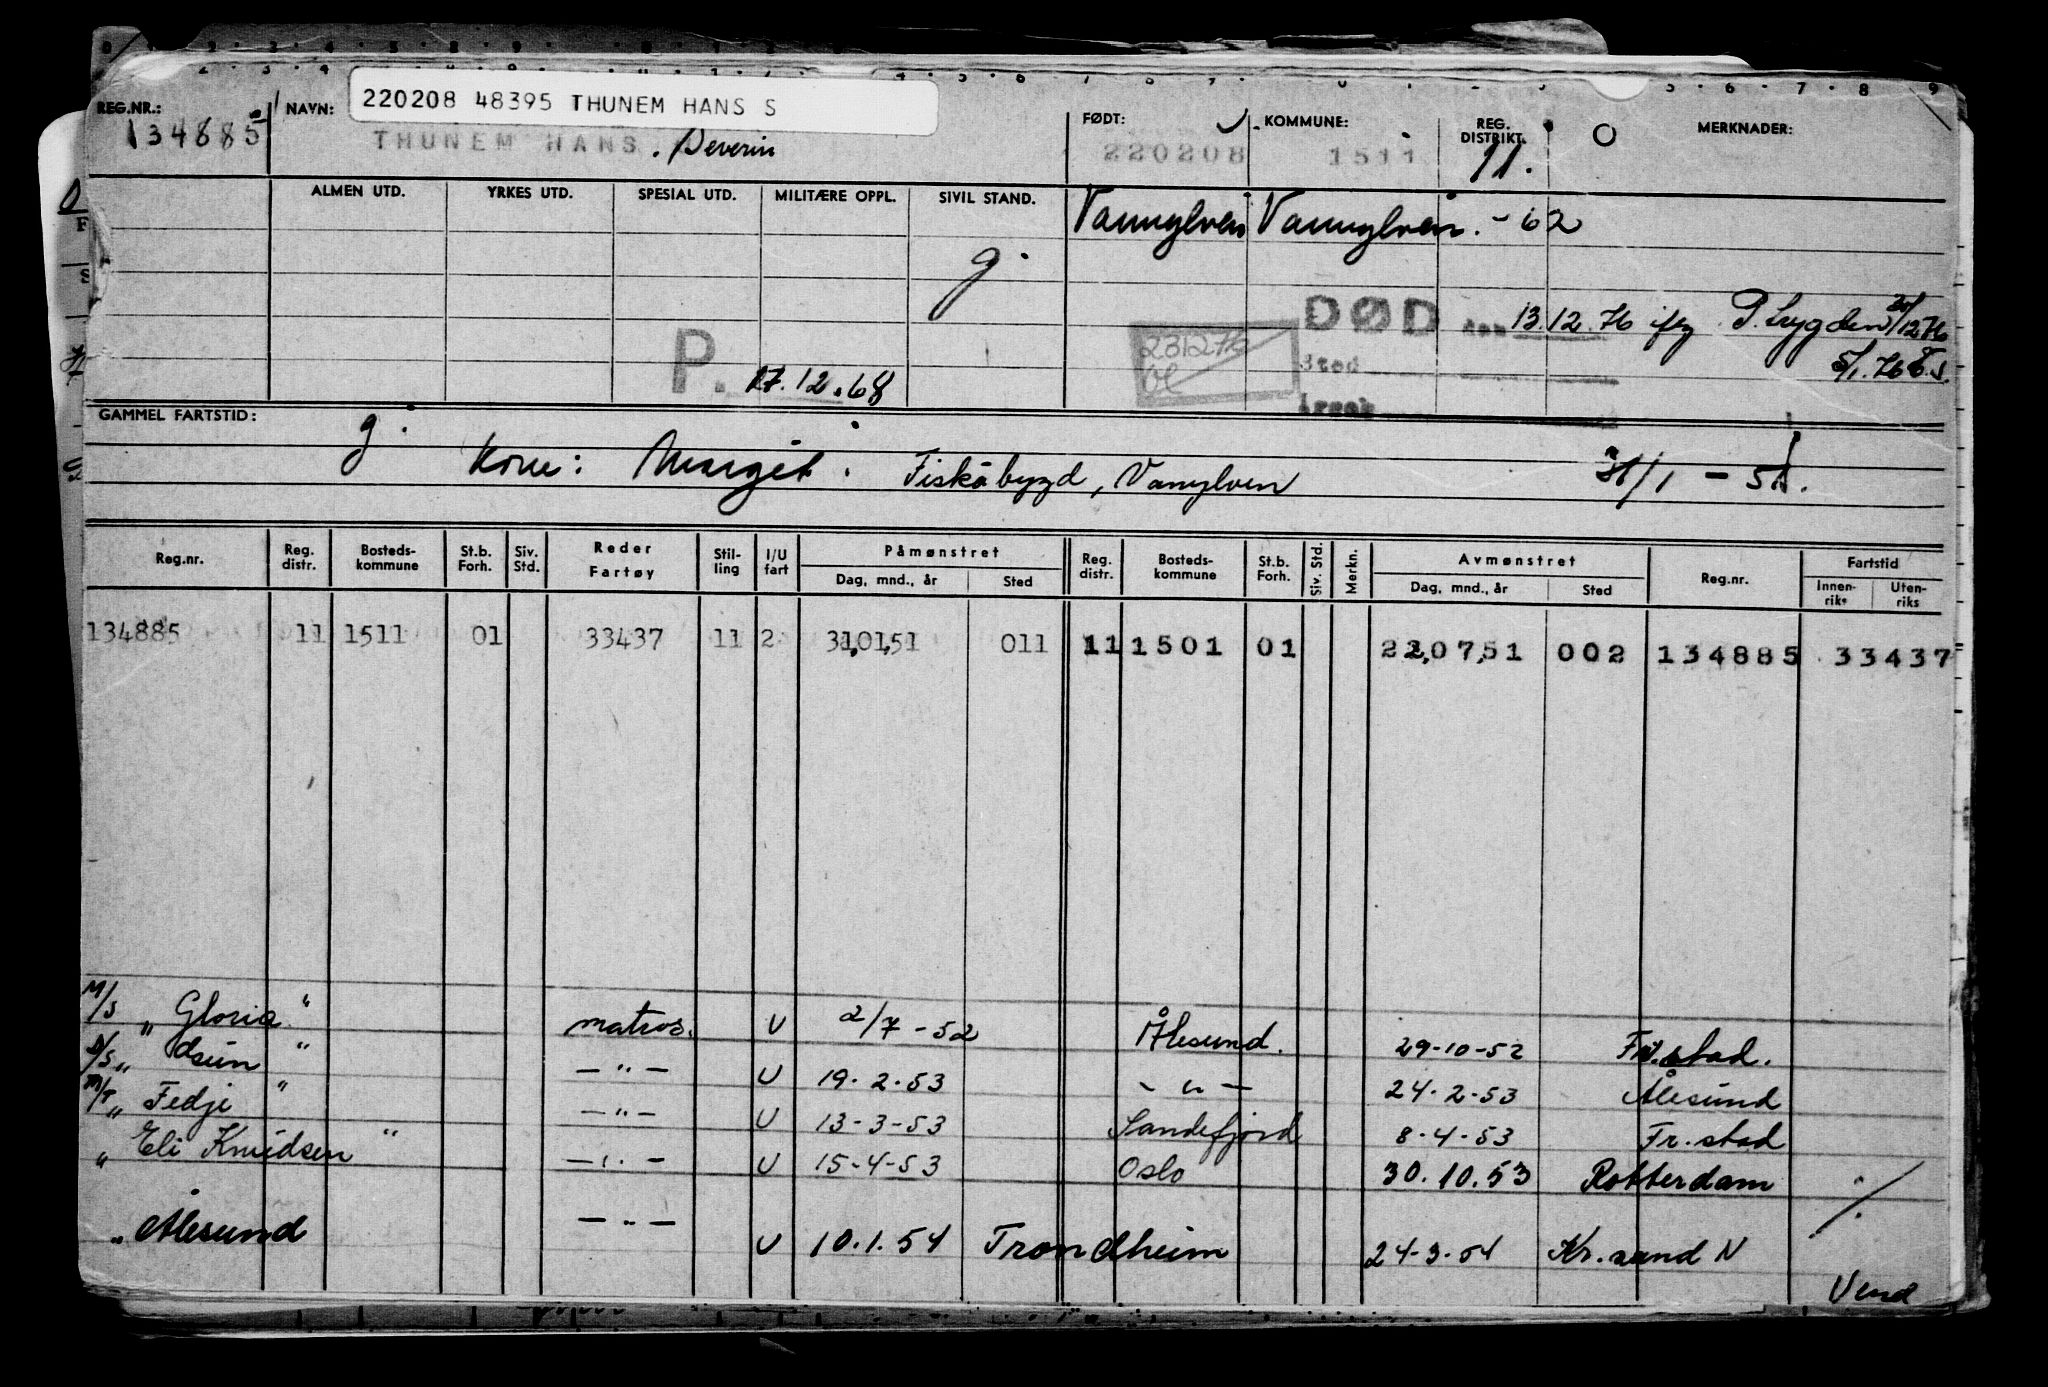 REG.NR.: NAVN: 220208 48395 THUNEM HANS S FØDT: KOMMUNE: REG. DISTRIKT. MERKNADER:
134885 THUNEM HANS. Severin 220208 1511 11.
ALMEN UTD. YRKES UTD. SPESIAL UTD. MILITÆRE OPPL. SIVIL STAND. Vannylven Vannylven. -62
g.
DØD den 13.12.76 ifg P. Lygden 30/12 76
231276 Sted 5/1.76
P. 17.12.68 Årsak
GAMMEL FARTSTID: g.
Kone: Margit. Fiskåbygd, Vanylven 31/1 - 51.
Reg.nr. Reg. distr. Bosteds- kommune St.b. Forh. Siv. Std. Reder Fartøy Stil- ling I/U fart Påmønstret Dag, mnd., år Sted Reg. distr. Bosteds- kommune St.b. Forh. Siv. Std. Merkn. Avmønstret Dag, mnd., år Sted Reg.nr. Fartstid Innen- riks Uten- riks
134885 11 1511 01 33437 11 2 31,01,51 011 11 1501 01 22,07,51 002 134885 33437
M/S „Gloria" matros. U 2/7-52 Ålesund. 29-10-52 Fr.stad.
D/S „ " — " — U 19.2.53 - " — 24.2-53 Ålesund
M/T „Fedje " — " — U 13-3-53 Sandefjord 8-4-53 Fr.stad
„ Eli Knudsen " — " — U 15-4-53 Oslo 30.10.53 Rotterdam
„ Ålesund — " — U 10.1.54 Trondheim 24-3-54 Kr.sund N
Vend